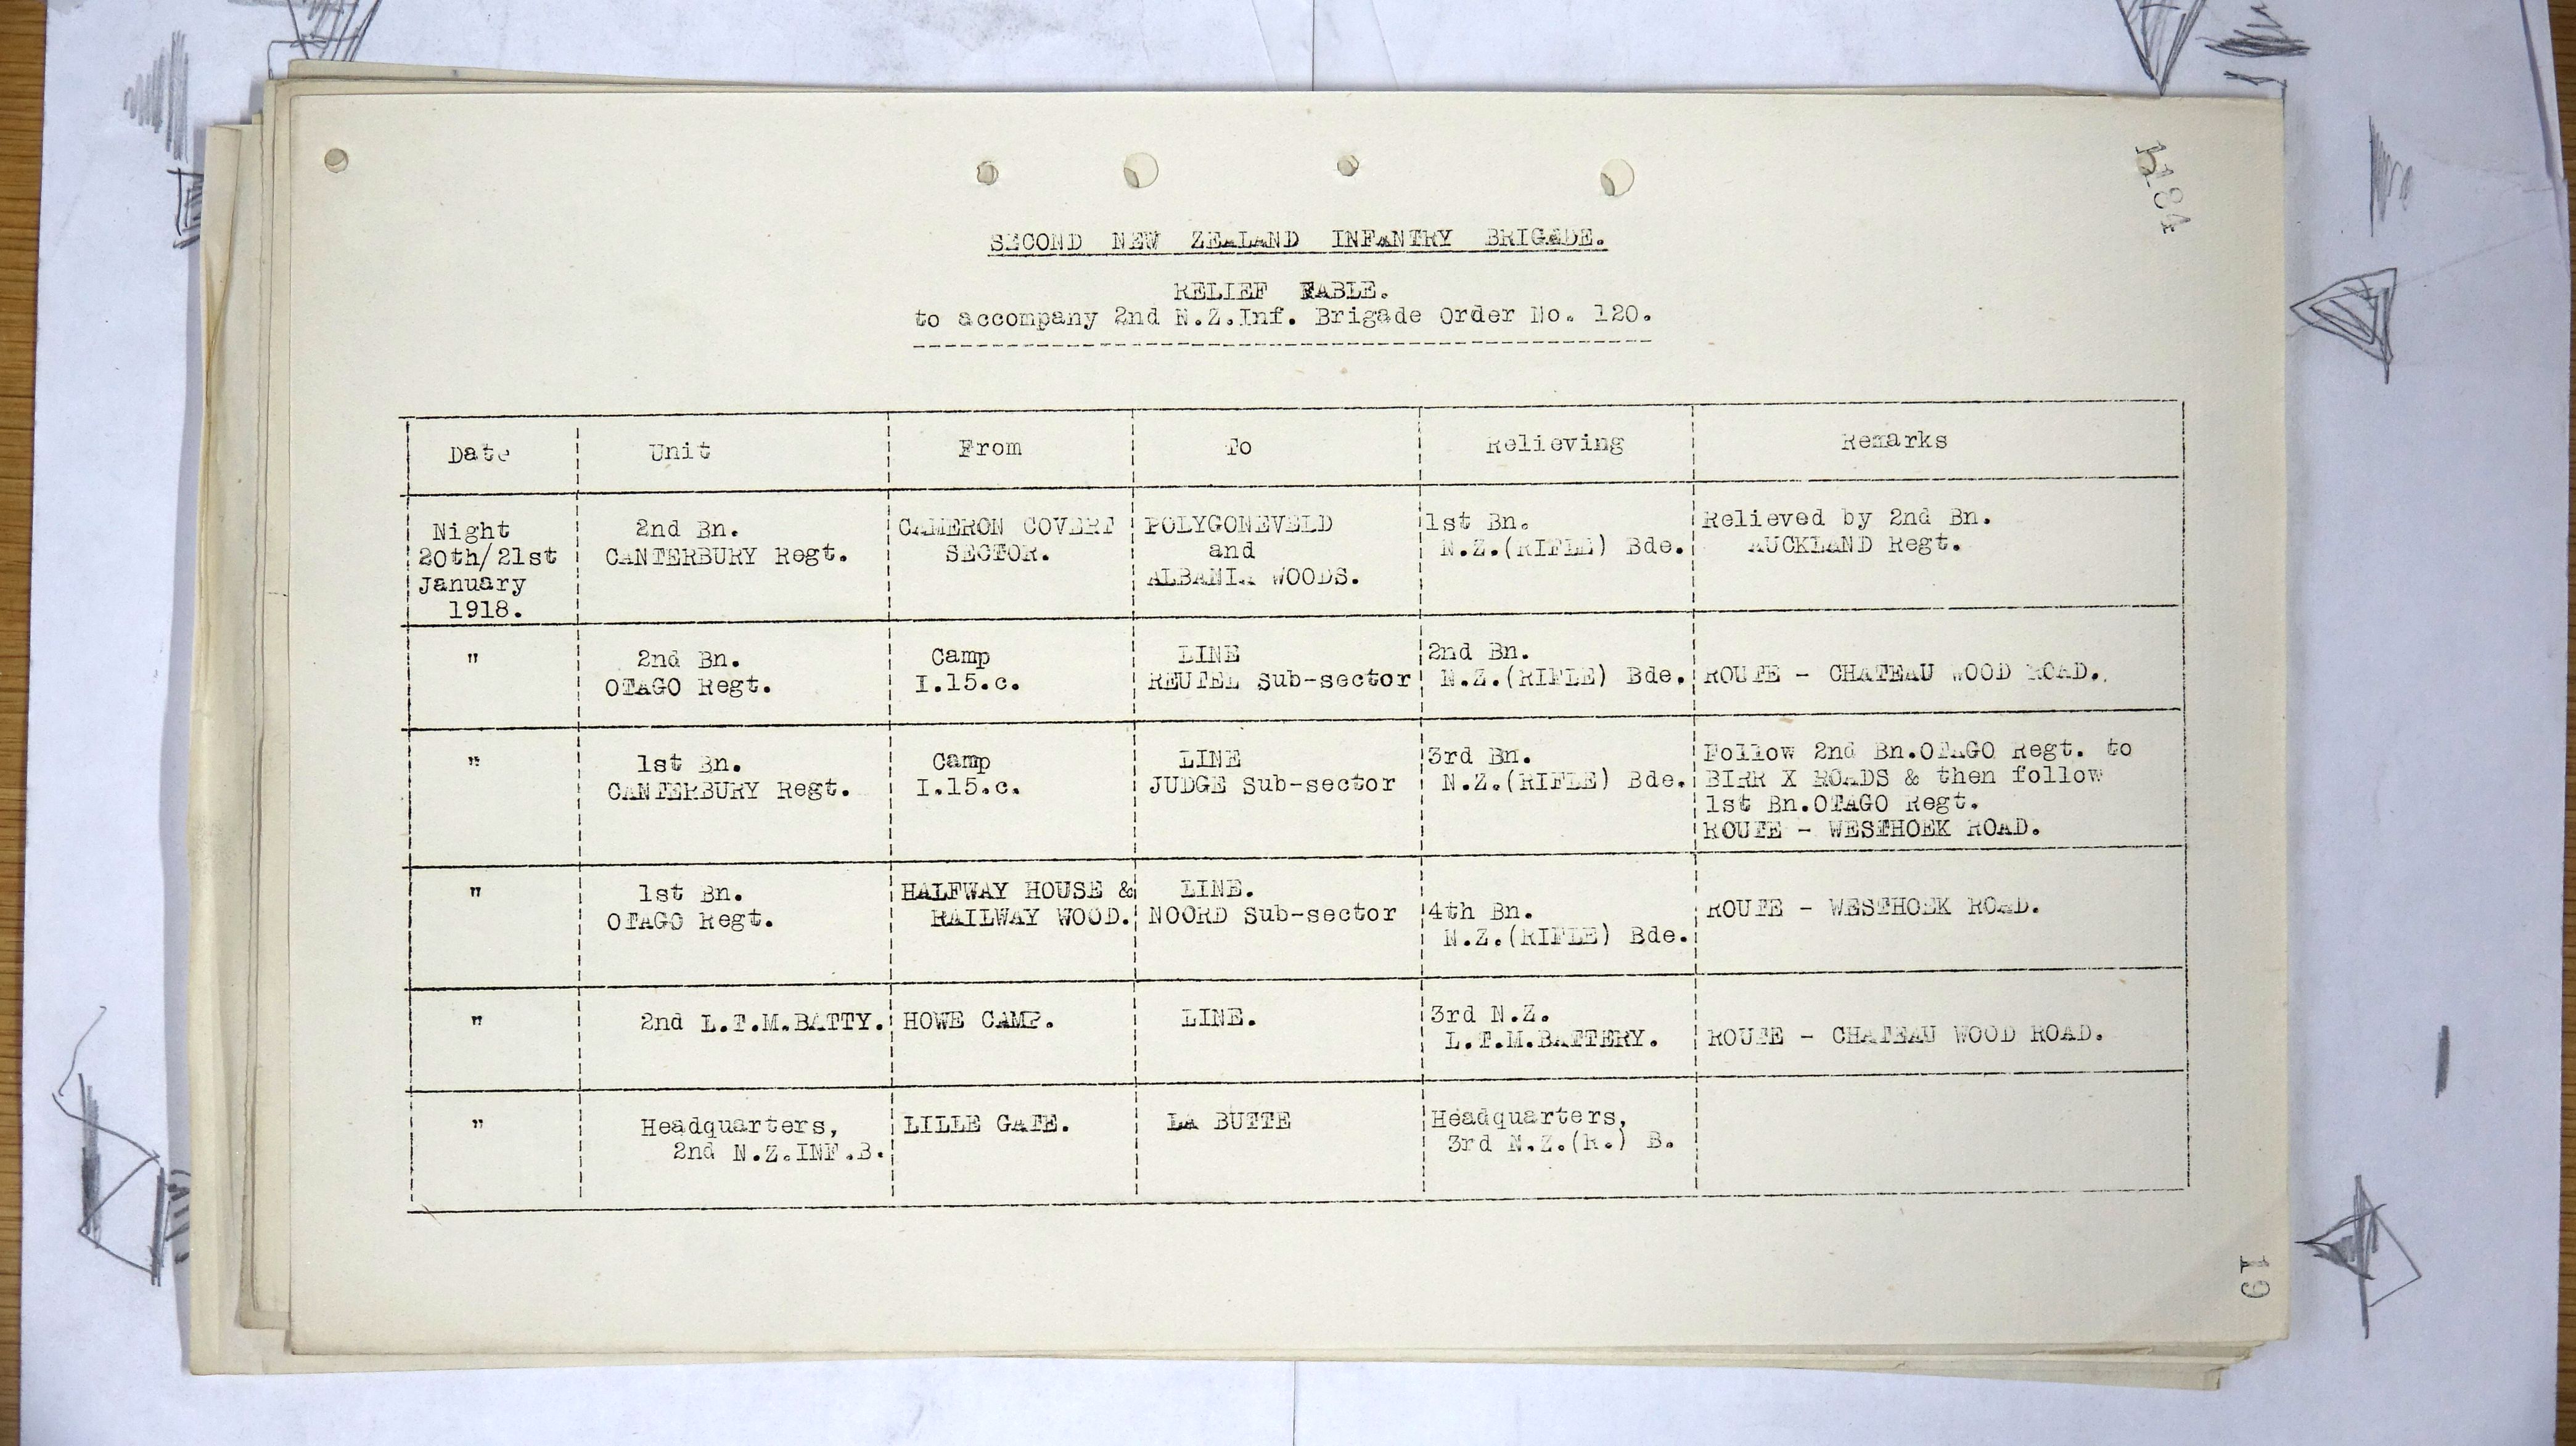 1184
SECOND NEW ZEALAND INFANTRY BRIGADE.
RELIEF TABLE.
to accompany 2nd N.Z.Inf. Brigade Order No. 120.
Date Unit From To Relieving Remarks
Night
20th/21st
January
1918.
2nd Bn.
CANTERBURY Regt.
CAMERON COVERT
SECTOR.
POLYGONEVELD
and
ALBANIA WOODS.
1st Bn.
N.Z.(RIFLE) Bde.
Relieved by 2nd Bn.
AUCKLAND Regt.
"
2nd Bn.
OTAGO Regt.
Camp
I.15.c.
LINE
REUTEL Sub-sector
2nd Bn.
N.Z.(RIFLE) Bde.
ROUTE - CHATEAU WOOD ROAD.
"
1st Bn.
CANTERBURY Regt.
Camp
I.15.c.
LINE
JUDGE Sub-sector
3rd Bn.
N.Z.(RIFLE) Bde.
Follow 2nd Bn.OTAGO Regt. to
BIRR X ROADS & then follow
1st Bn.OTAGO Regt.
ROUTE - WESTHOEK ROAD.
"
1st Bn.
OTAGO Regt.
HALFWAY HOUSE &
RAILWAY WOOD.
LINE.
NOORD Sub-sector
4th Bn.
N.Z.(RIFLE) Bde.
ROUTE - WESTHOEK ROAD.
"
2nd L.T.M.BATTY.
HOWE CAMP.
LINE.
3rd N.Z.
L.T.M.BATTERY.
ROUTE - CHATEAU WOOD ROAD.
"
Headquarters,
2nd N.Z.INF.B.
LILLE GATE.
LA BUTTE
Headquarters,
3rd N.Z.(R.) B.
19